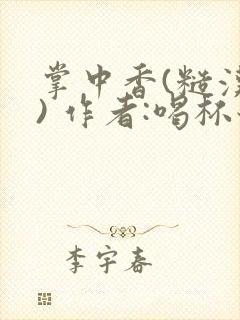 掌中香(糙汉
) 作者:喝杯
李宇春